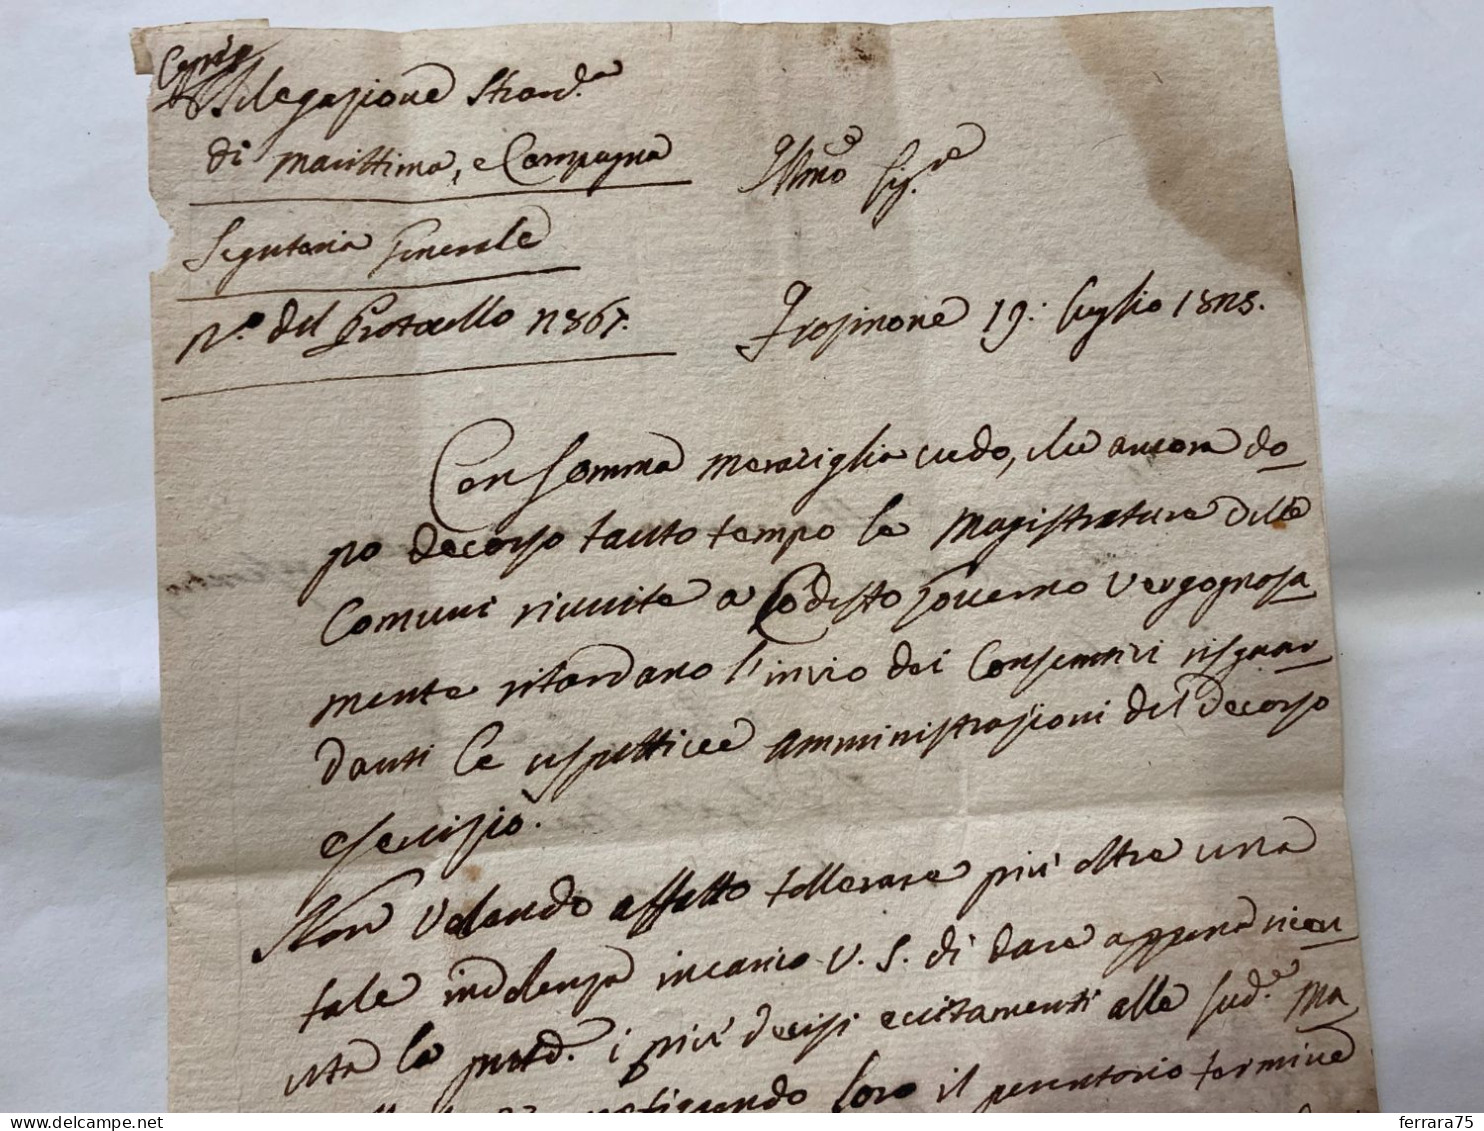 Copia
Delegazione Straord.a
di Marittima, e Campagna
Segreteria Generale
N.o del Protocollo 11867.
Illmo Sig.re
Frosinone 19: Luglio 18
Con somma meraviglia vedo, che ancora do-
po decorso tanto tempo le Magistrature delle
Comuni riunite a Codesto Governo vergognosa
mente ritardano l'invio dei Consuntivi risguar-
danti le rispettive amministrazioni del decorso
esercizio.
Non volendo affatto tollerare più oltre una
tale indolenza incarico V. S. di dare appena ricev
uta la pnte i più decisi eccitamenti alle Sud.e Ma
notificando loro il perentorio termine
ferrara75